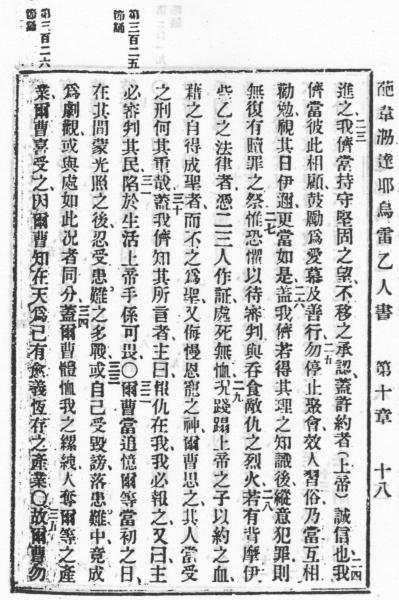 葩韋泐達耶烏雷乙人書 第十章 十八
二三 二四
進之我儕當持守堅固之望不移之承認蓋許約者(上帝)誠信也我
二五
儕當彼此相顧鼓勵爲愛慕及善行勿停止聚會效人習俗乃當互相
二六
勸勉視其日伊邇更當如是蓋我儕若得其理之知識後縱意犯罪則
二七
無復有贖罪之祭惟恐懼以待審判與吞食敵仇之烈火若有背摩伊
二八
些乙之法律者憑二三人作証處死無恤况踐蹋上帝之子以約之血
二九
藉之自得成聖者而不之爲聖又侮慢恩寵之神爾曹思之其人當受
三十
之刑何其重哉蓋我儕知其所言者主曰報仇在我我必報之又曰主
三一 三二
必審判其民陷於生活上帝手係可畏〇爾曹當追憶爾等當初之日
三三
在其間蒙光照之後忍受患難之多戰或自己受毀謗落患難中竟成
三四
爲劇觀或與處如此况者同分蓋爾曹體恤我之縲絏人奪爾等之產
三五
業爾曹喜受之因爾曹知在天爲己有愈義恆存之產業〇故爾曹勿
第三百二五
節誦
第三百二六
節誦